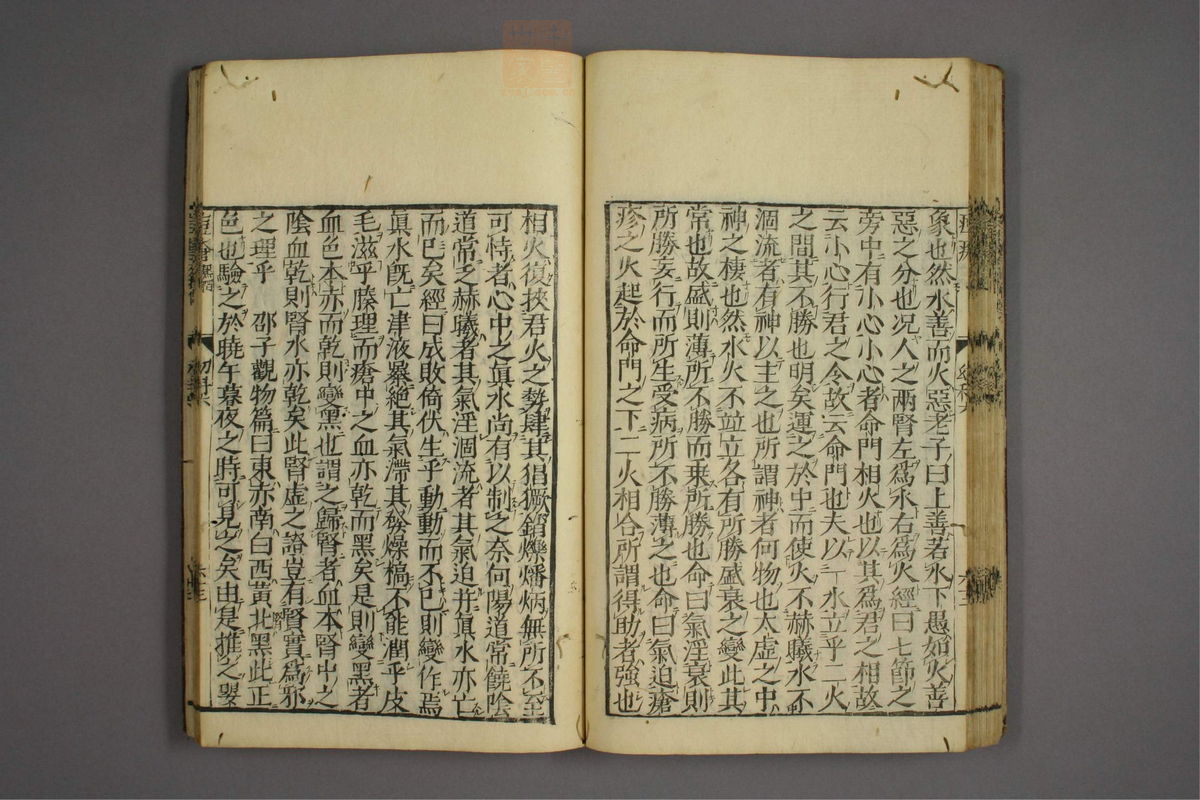 象也然水善而火惡老子曰上善若水下愚如火善
惡之分也况人之兩腎左爲水右爲火經曰七節之
旁中有小心小心者命門相火也以其爲君之相故
云小心行君之令故云命門也夫以一水立乎二火
之間其不勝也明矣運之於中而使火不赫曦水不
涸流者有神以主之也所謂神者何物也太虛之中
神之棲也然水火不竝立各有所勝盛衰之變此其
常也故盛則薄所不勝而乗所勝也命曰氣淫衰則
所勝妄行而所生受病所不勝薄之也命曰氣迫瘡
疹之火起於命門之下二火相合所謂得助者強也
相火復挾君火之勢肆其猖獗銷爍燔炳無所不至
可恃者心中之眞水尚有以制之奈何陽道常饒陰
道常乏赫曦者其氣淫涸流者其氣迫并眞水亦亡
而已矣經曰成敗倚伏生乎動動而不已則變作焉
眞水既亡津液暴絶其氣滯其發燥槁不能潤乎皮
毛滋乎腠理而瘡中之血亦乾而黑矣是則變黑者
血色本赤而乾則變黑也謂之歸腎者血本腎中之
陰血乾則腎水亦乾矣此腎虛之證豈有腎實爲邪
之理乎 邵子觀物篇曰東赤南白西黃北黑此正
色也驗之於曉午暮夜之時可見之矣由是推之嬰